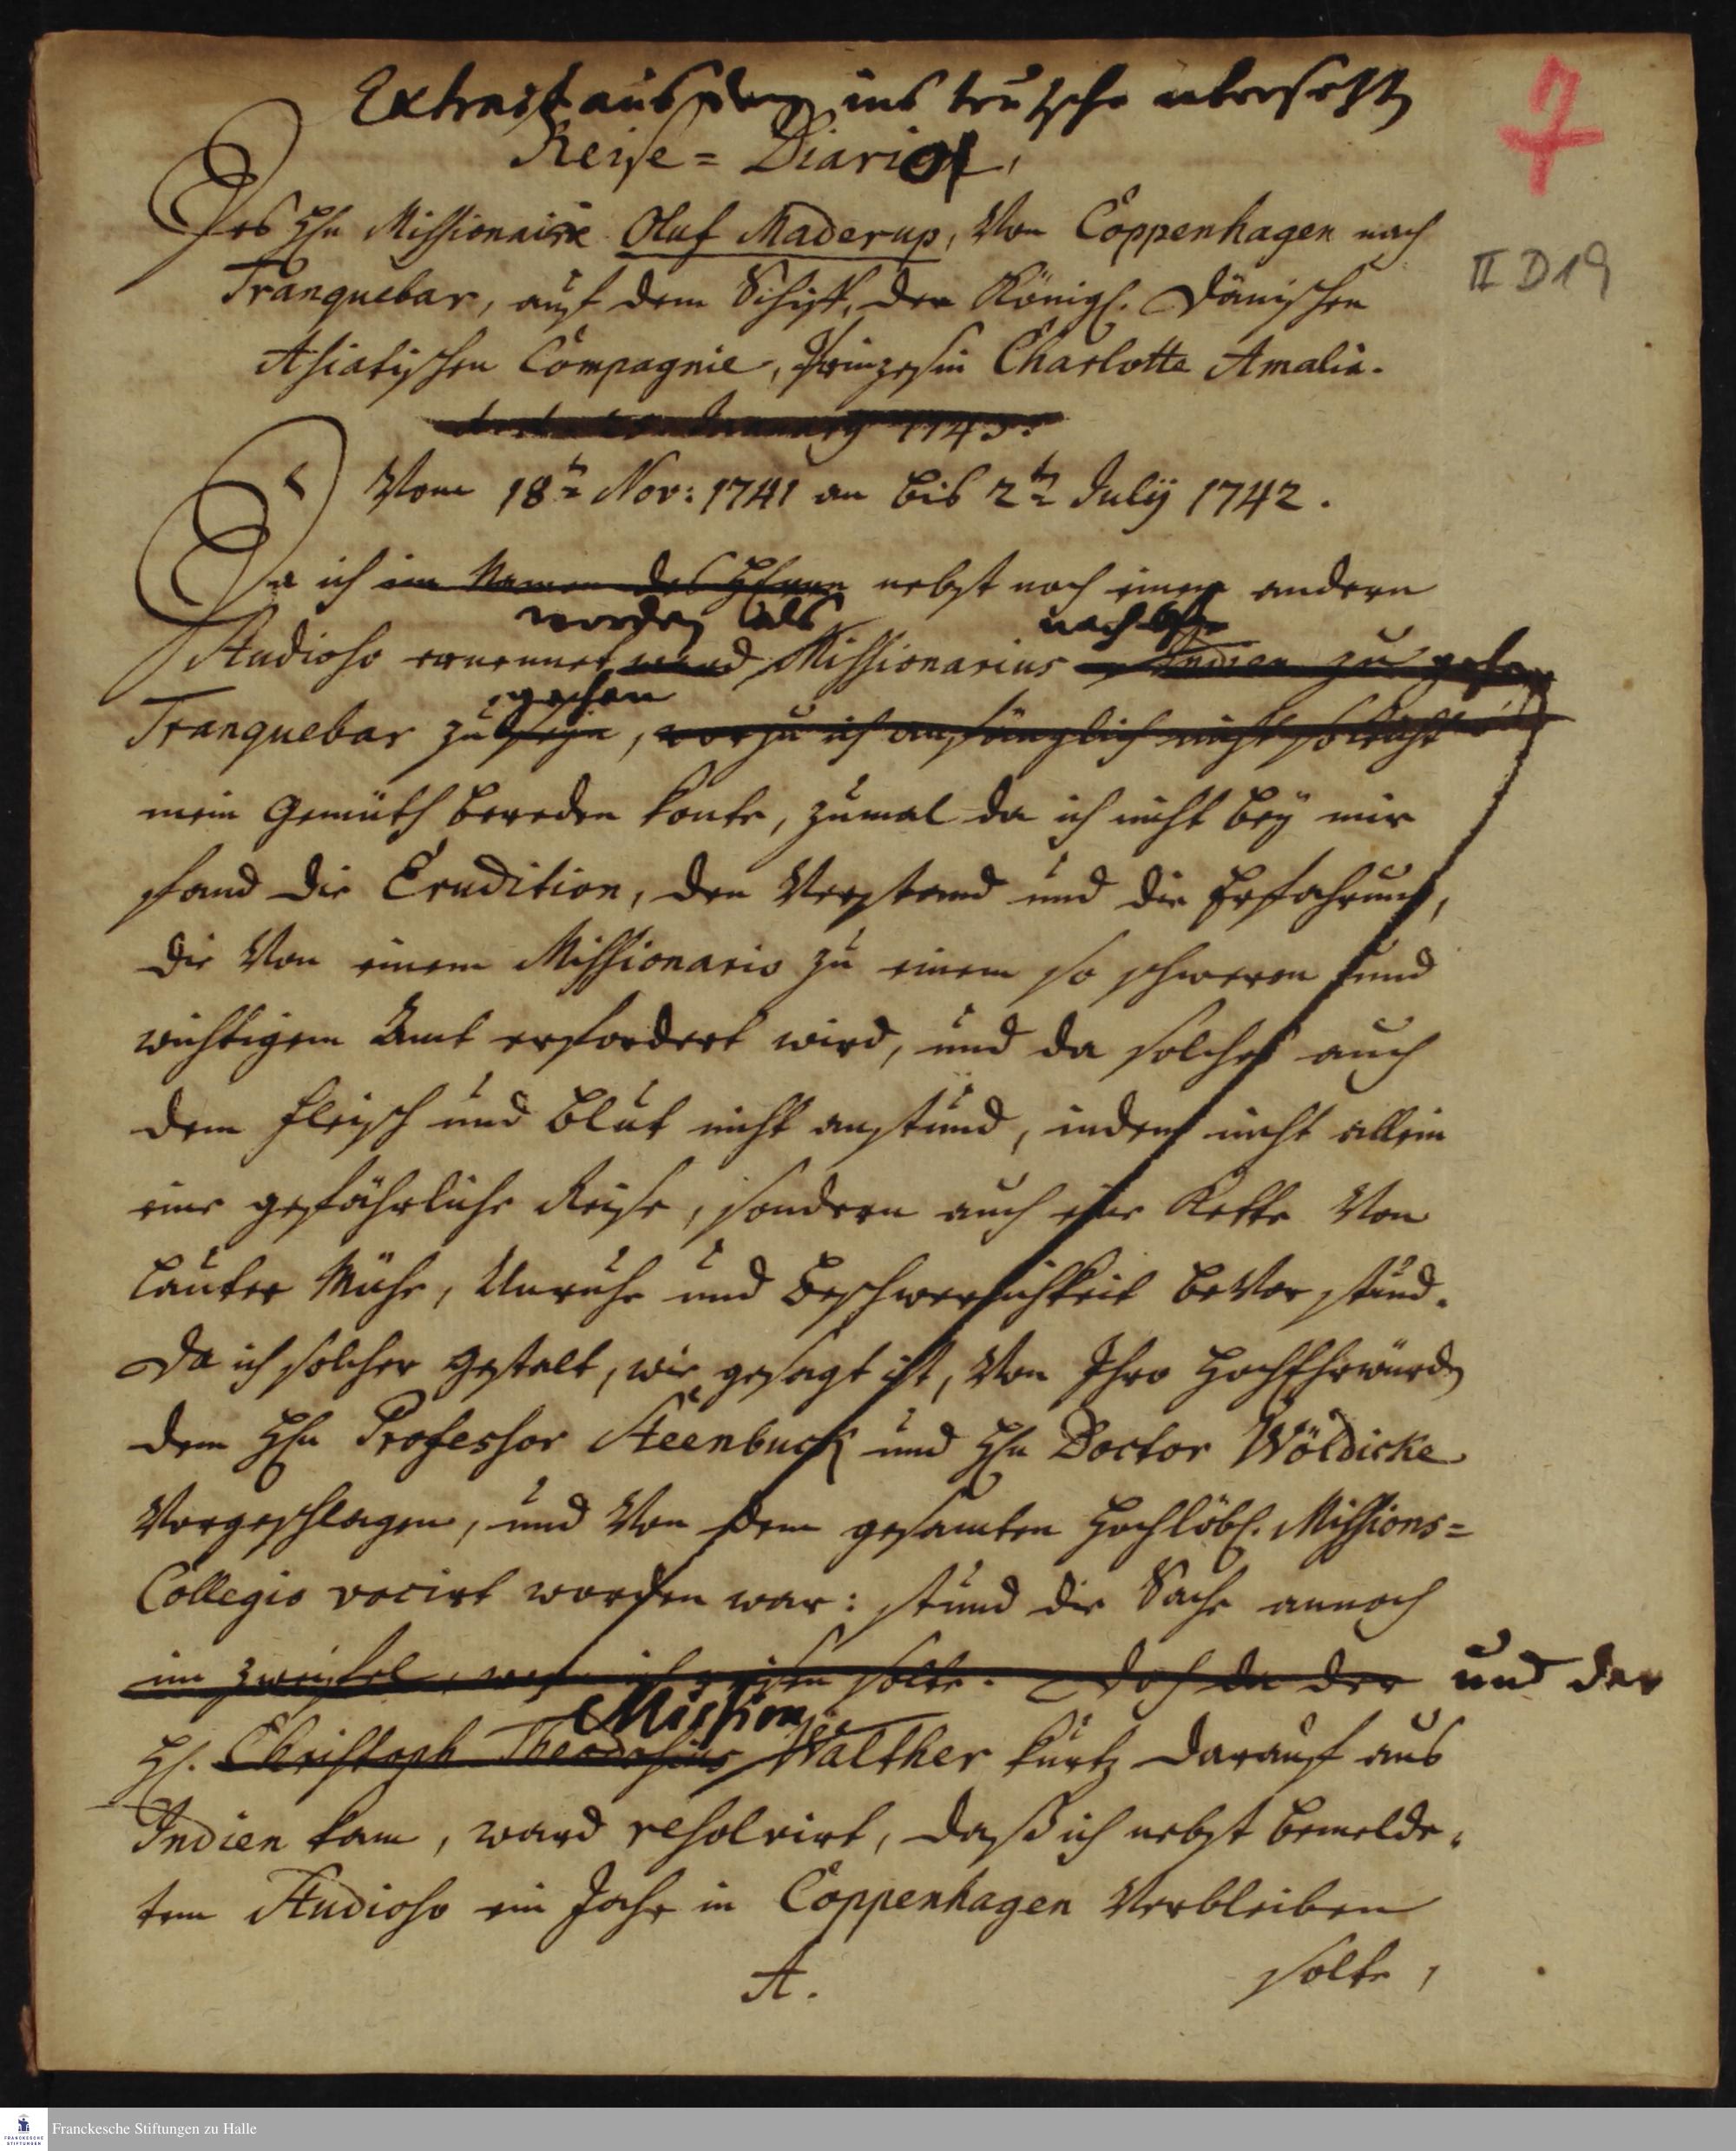 Extract aus dem ins teutsche ubersetzten
7
Reise=Diario,
Des Hℓn Missionaire Oluf Maderup, Von Coppenhagen nach
II D 19
Tranquebar, auf dem Schiff, der Königl. Dänischen
Asiatischen Compagnie, Prinzeßin Charlotte Amalia.
1743.
Vom 18tn Nov: 1741 an bis 2tn Julÿ 1742.
Da ich im Namen des HErrn nebst noch einem andern
worden als nach
Studioso ernennet ward Missionarius Indien zu gehen
gehen
Tranquebar zu seyn, worzu ich anfänglich nicht so leicht
mein Gemüth bereden konte, zumal da ich nicht beÿ mir
fand die Erudition, den Verstand und die Erfahrung,
die Von einem Missionario zu einem so schweren und
wichtigem Amt erfordert wird, und da solches auch
dem Fleisch und Blut nicht anstund, indem nicht allein
eine gefährliche Reise, sondern auch eine Kette Von
lauter Mühe, Unruhe und Beschwerlichkeit beVor stund.
Da ich solcher Gestalt, wie gesagt ist, Von Ihro HochEhrwürden
dem Hℓn Professor Steenbuck und Hℓn Doctor Wöldicke
Vorgeschlagen, und Von dem gesamten Hochlöbl. Missions=
Collegio vocirt worden war: stund die Sache annoch
im Zweifel, wenn ich reisen solte. Doch da der und der
Mission
H. Christoph Theodosius Walther kurtz darauf aus
Indien kam, ward resolvirt, daß ich nebst bemelde=
tem Studioso ein Jahr in Coppenhagen Verbleiben
A. solte,
Franckesche Stiftungen zu Halle
FRANCKESCHE
STIFTUNGEN